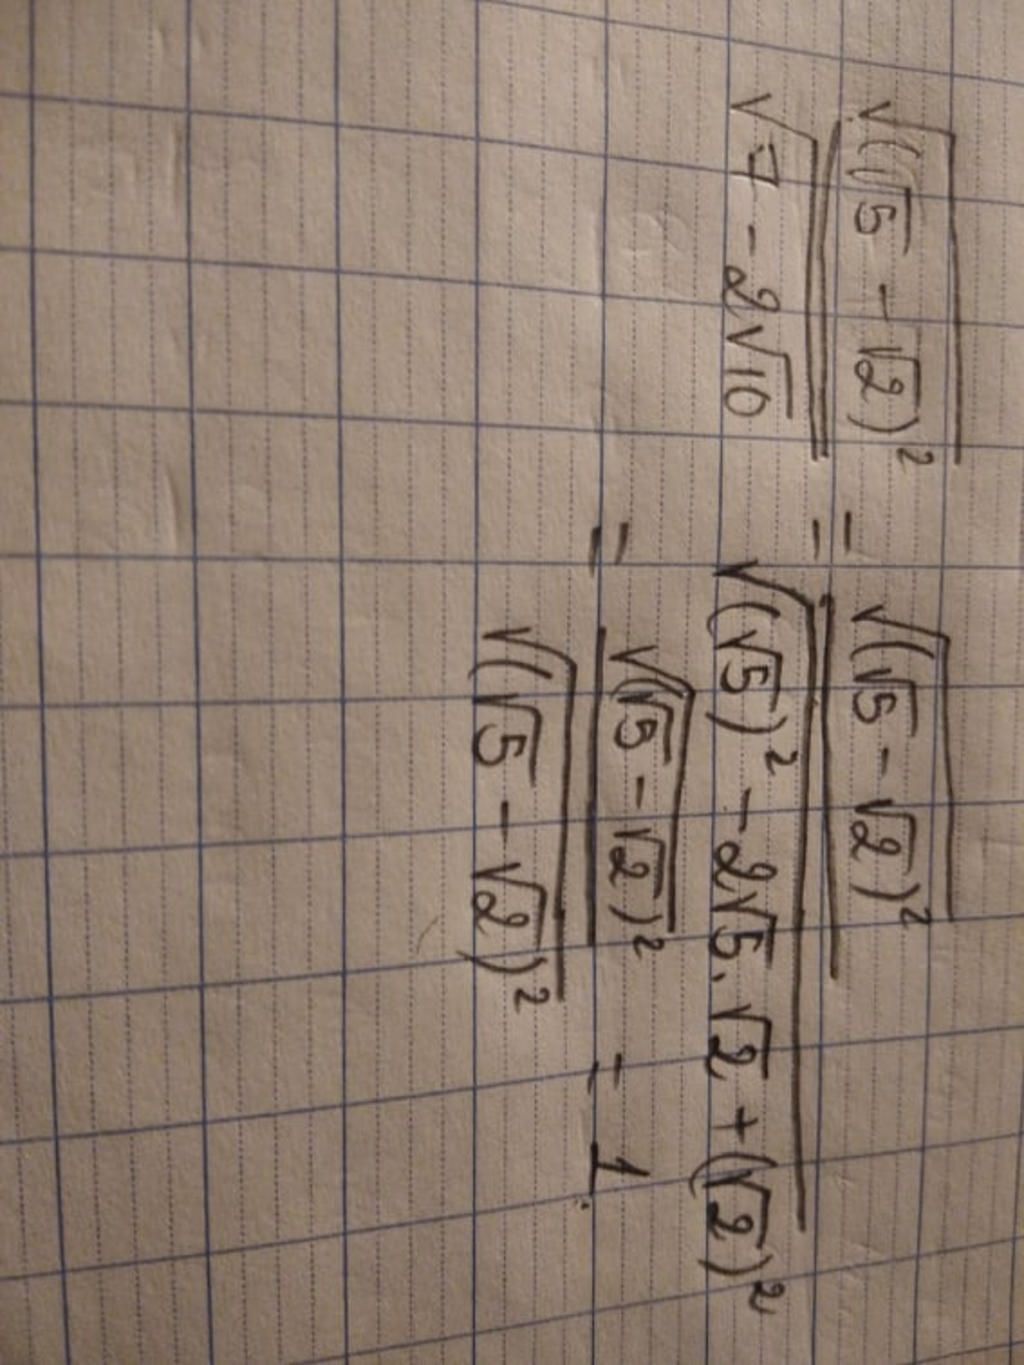 √((√5 - √2)²) / √(7 - 2√10) = √((√5 - √2)²) / √((√5)² - 2√5.√2 + (√2)²)
= √((√5 - √2)²) / √((√5 - √2)²) = 1.